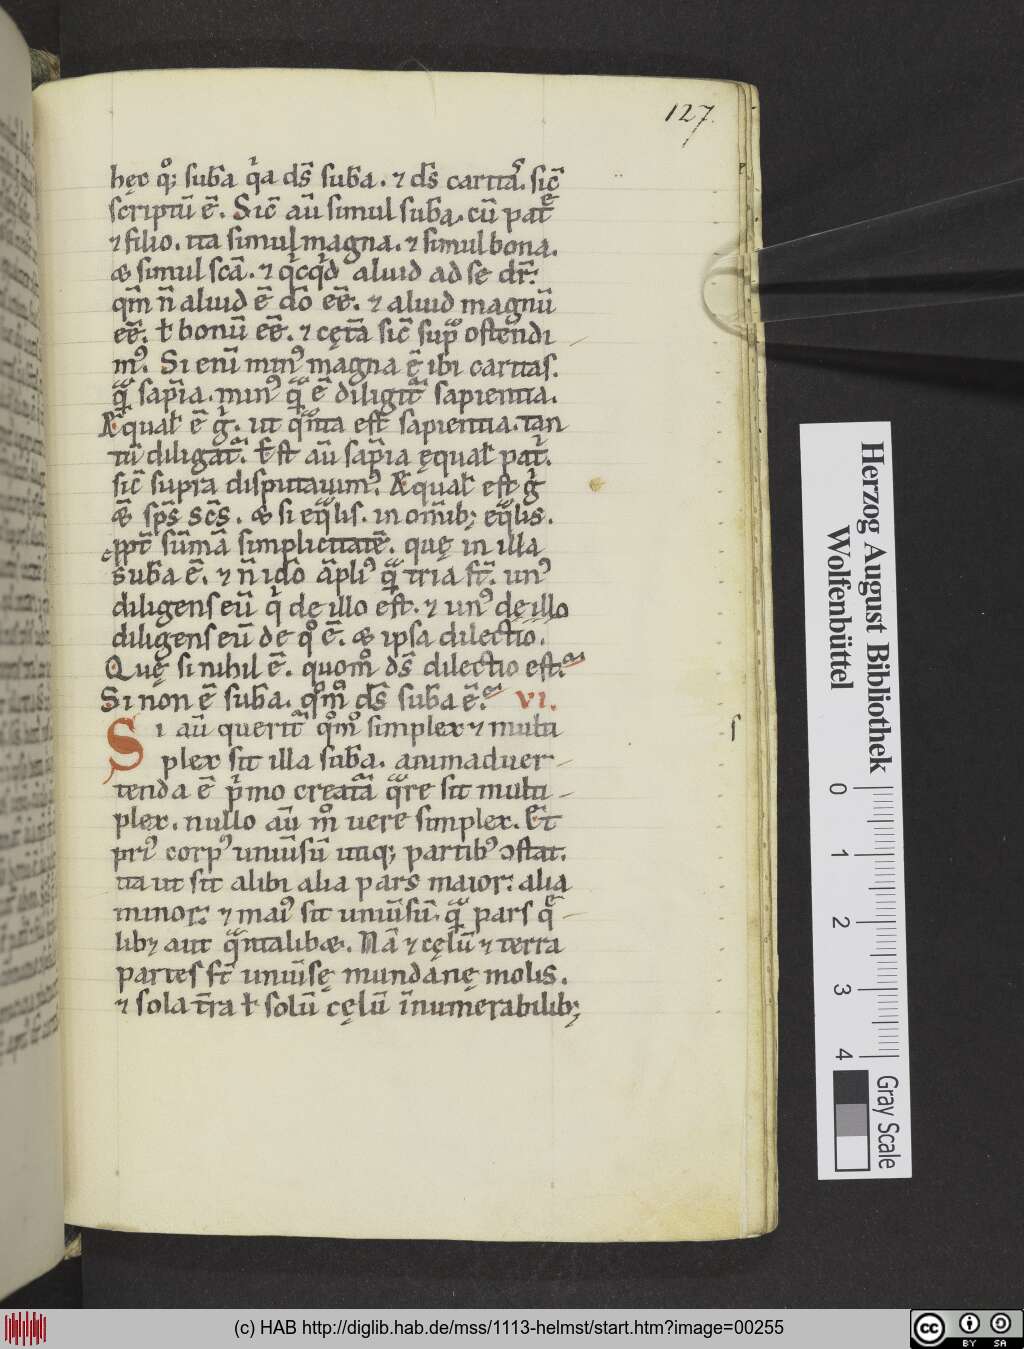 127.
hęc q°; sub̄a q̇a ds̄ sub̄a. ⁊ ds̄ caritas̄. sic̄
scriptū ē. Sic̄ aū simul sub̄a. cū patre
⁊ filio. ita simul magna. ⁊ simul bona.
& simul scā. ⁊ qicqid aliud ad se dr̄.
qm̄ n̄ aliud ē dō eē. ⁊ aliud magnū
eē. ł bonū eē. ⁊ cęt̄a sic̄ sup̄ ostendi
m⁹. Si enī min⁹ magna ē ibi caritas.
qͣ sap̄ia. min⁹ qͣ ē diligit̄ sapientia.
Æqual' ē g̊. ut qͣnta est sapientia. tan
tū diligat̄. Ē st aū sap̄ia ęqual' pat̄.
sic̄ supra disputauim⁹. Æqual' est g̊
& sp̄s sc̄s. & si eqͣlis. in omīb; eqͣlis.
ppt̄ sūmā simplicitatē. quę in illa
sub̄a ē. ⁊ n̄ idō āpli⁹ qͣ tria st̄. un⁹
diligens eū q̇ de illo est. ⁊ un⁹ de illo
diligens eū de q° ē. & ipsa dilectio.
Quę si nihil ē. quom° ds̄ dilectio est.
Si non ē sub̄a. q°m° ds̄ sub̄a ē. VI.
Si aū querit̄ q°m° simplex ⁊ multi
plex sit illa sub̄a. animaduer-
tenda ē ṗmo creat̄a qͣre sit multi-
plex. nullo aū m° uere simplex. Et
pri⁹ corp⁹ uniūsū utiq; partib⁹ ↄstat.
ita ut sit alibi alia pars maior: alia
minor: ⁊ mai⁹ sit uniūsū. qͣ pars q̄-
lib; aut qͣntalibæ. Nā ⁊ cęlū ⁊ terra
partes st̄ uniūsę mundanę molis.
⁊ sola t̄ra ł solū cęlū īnumerabilib;
Herzog August Bibliothek
Wolfenbüttel
0 1 2 3 4
Gray Scale
(c) HAB http://diglib.hab.de/mss/1113-helmst/start.htm?image=00255
cc BY SA